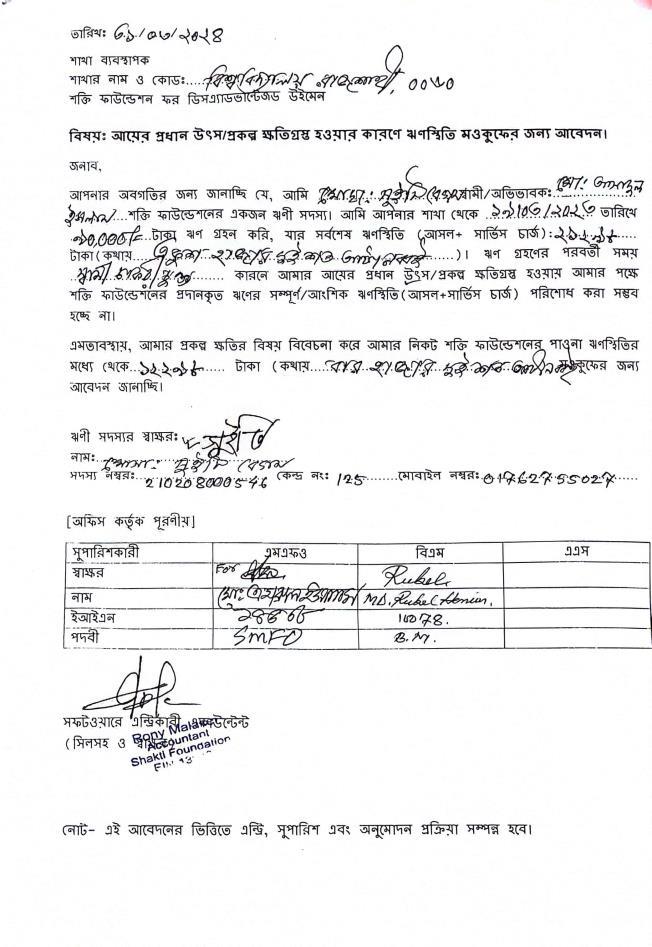 তারিখঃ
শাখা ব্যবস্থাপক
শাখার নাম ও কোডঃ..... বিশ্ববিদ্যালয় রাজশাহী, ০০৬০
শক্তি ফাউন্ডেশন ফর ডিসএ্যাডভান্টেজড উইমেন
বিষয়ঃ আয়ের প্রধান উৎস/প্রকল্প ক্ষতিগ্রস্থ হওয়ার কারণে ঋণস্থিতি মওকুফের জন্য আবেদন।
জনাব,
আপনার অবগতির জন্য জানাচ্ছি যে, আমি মোছাঃ সুইটি বেগম স্বামী/অভিভাবক: মো:
ইসলাম...শক্তি ফাউন্ডেশনের একজন ঋণী সদস্য। আমি আপনার শাখা থেকে তারিখে
টাকা ঋণ গ্রহন করি, যার সর্বশেষ ঋণস্থিতি (আসল+ সার্ভিস চার্জ):
টাকা (কথায় একুশ হাজার দুইশত )। ঋণ গ্রহণের পরবর্তী সময়
কারনে আমার আয়ের প্রধান উৎস/প্রকল্প ক্ষতিগ্রস্থ হওয়ায় আমার পক্ষে
শক্তি ফাউন্ডেশনের প্রদানকৃত ঋণের সম্পূর্ণ/আংশিক ঋণস্থিতি (আসল+সার্ভিস চার্জ) পরিশোধ করা সম্ভব
হচ্ছে না।
এমতাবস্থায়, আমার প্রকল্প ক্ষতির বিষয় বিবেচনা করে আমার নিকট শক্তি ফাউন্ডেশনের পাওনা ঋণস্থিতির
মধ্যে থেকে টাকা (কথায় বার হাজার দুইশত মওকুফের জন্য
আবেদন জানাচ্ছি।
ঋণী সদস্যর স্বাক্ষরঃ সুইটি
নাম: মোসা: সুইটি বেগম
সদস্য নম্বর: 210208000546 কেন্দ্র নং: 125 মোবাইল নম্বর: 01762755027
[অফিস কর্তৃক পূরণীয়]
সুপারিশকারী এমএফও বিএম এএস
স্বাক্ষর For Rubel
নাম মোঃ MD. Rubel
ইআইএন
পদবী SMFO B.M.
সফটওয়ারে এন্ট্রিকারী একাউন্টেন্ট
(সিলসহ ও
Accountant
Shakti Foundation
নোট- এই আবেদনের ভিত্তিতে এন্ট্রি, সুপারিশ এবং অনুমোদন প্রক্রিয়া সম্পন্ন হবে।